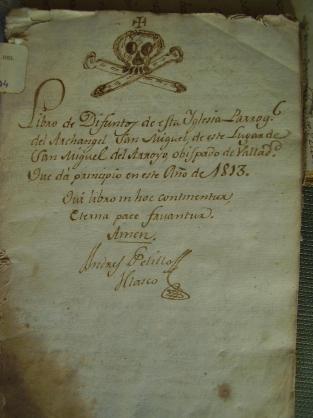 Libro de Difuntos de esta Iglesia Parroq.l
del Archangel San Miguel, de este Lugar de
San Miguel del Arroyo, obispado de Vallad.d
Que dá principio en este Año de 1818.
Qui libro in hoc continentur
Eterna pace fruantur.
Amen.
Andres
Blasco